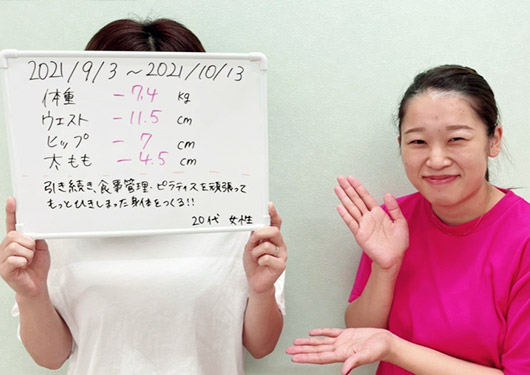 2021/9/3 ～ 2021/10/13
体重 －7.4 kg
ウエスト －11.5 cm
ヒップ －7 cm
太もも －4.5 cm
引き続き、食事管理・ピラティスを頑張って
もっとひきしまった身体をつくる!!
20代 女性